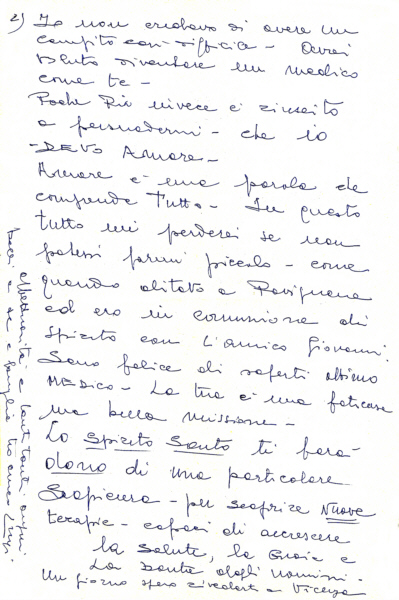 2) Io non credevo di avere un
compito così difficile - Avrei
voluto diventare un medico
come te -
Padre Pio invece è riuscito
a persuadermi - che io
- DEVO AMARE -
Amare è una parola che
comprende Tutto - In questo
tutto mi perderei se non
potessi farmi piccolo - come
quando abitavo a Rovignana
ed ero in comunione di
Spirito con l'amico Giovanni.
Sono felice di saperti ottimo
MEDICO - La tua è una faticosa
ma bella missione -
Lo Spirito Santo ti farà
dono di una particolare
Sapienza - per scoprire Nuove
terapie - capaci di accrescere
la salute, la Gioia e
La Bontà degli uomini.
Un giorno spero rivederti a Vicenza
affettuosità e tanti tanti auguri
Baci a te e famiglia tuo Luigi